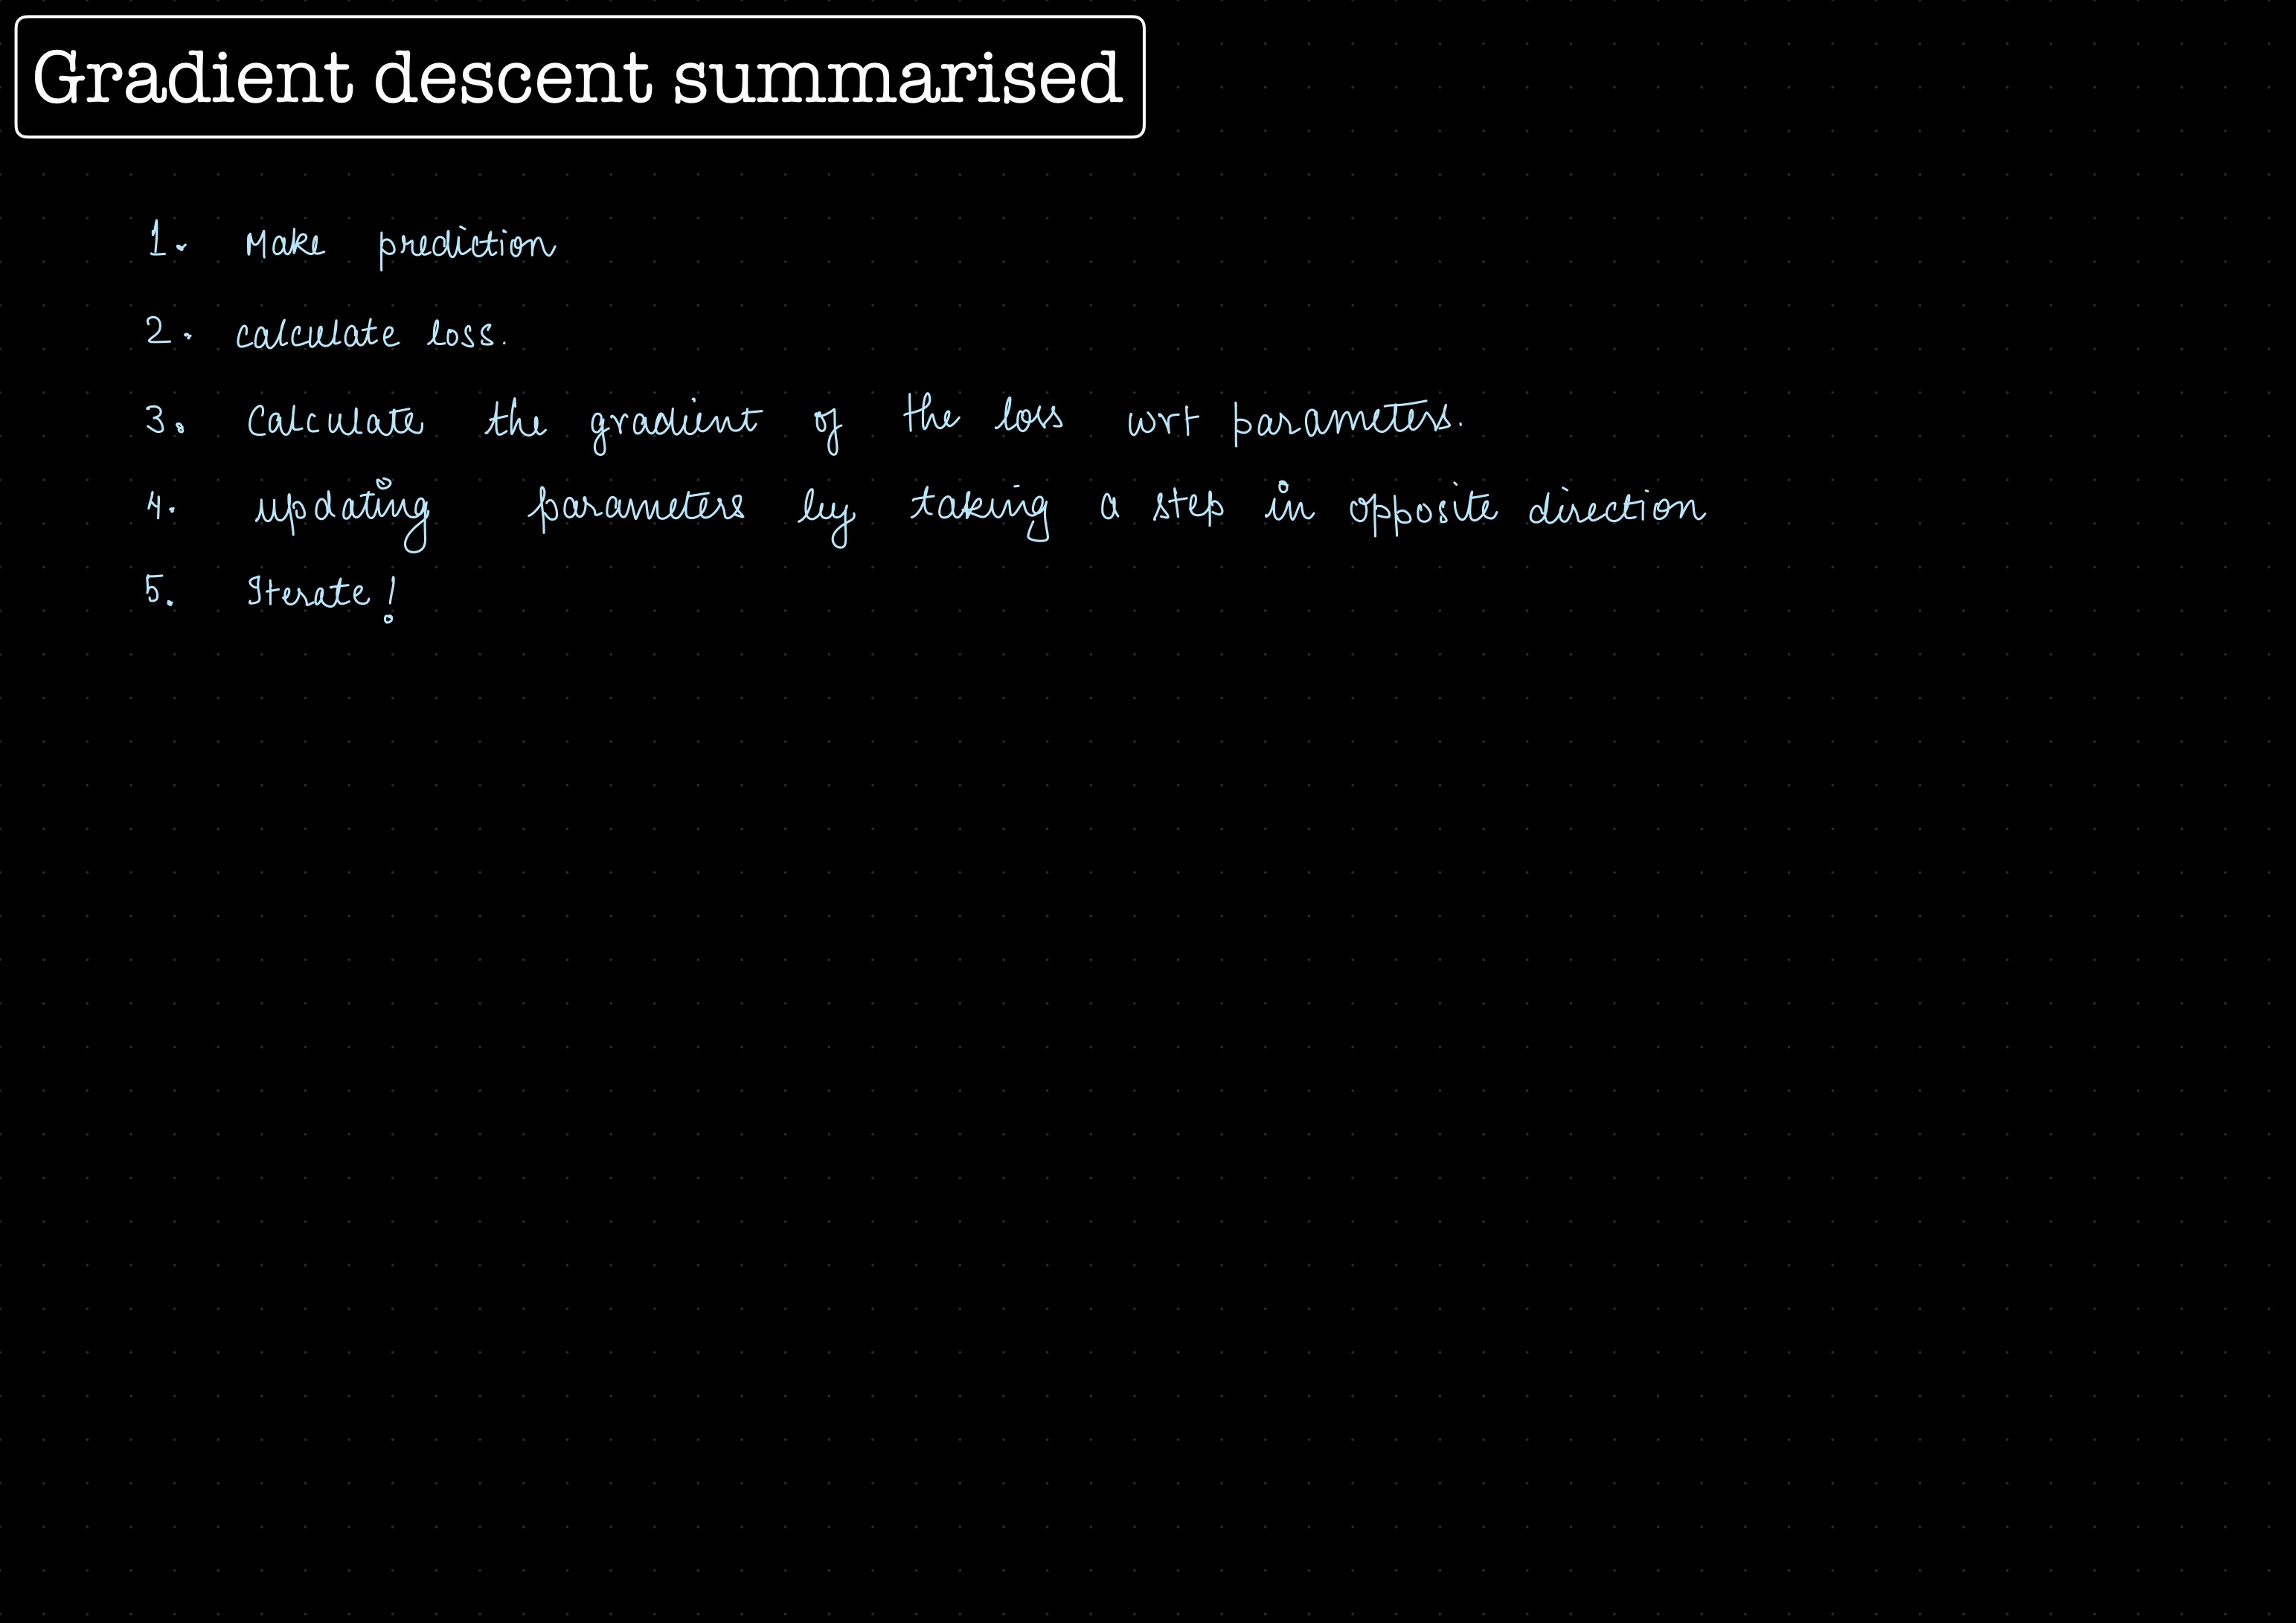 Gradient descent summarised
1. Make prediction
2. calculate loss.
3. Calculate the gradient of the loss wrt parameters.
4. updating parameters by taking a step in opposite direction
5. Iterate!